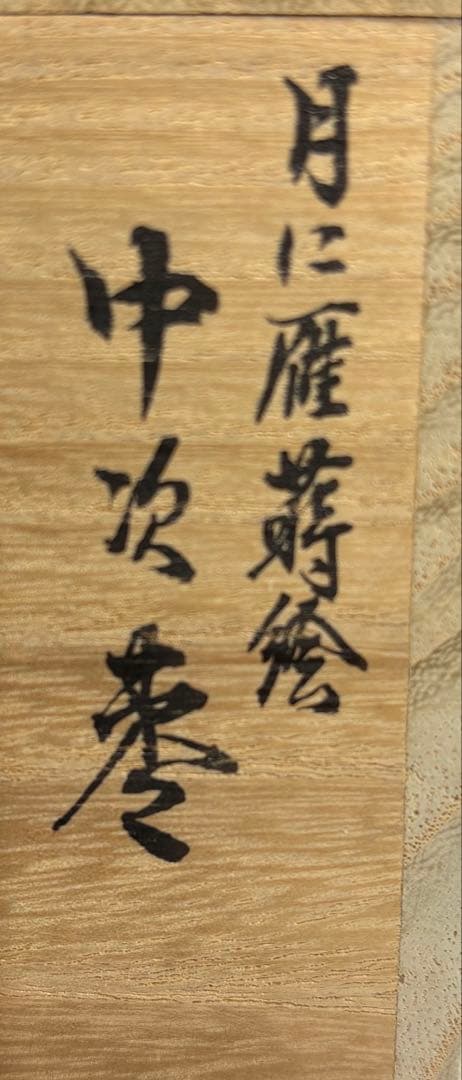 月に雁蒔絵
中次棗